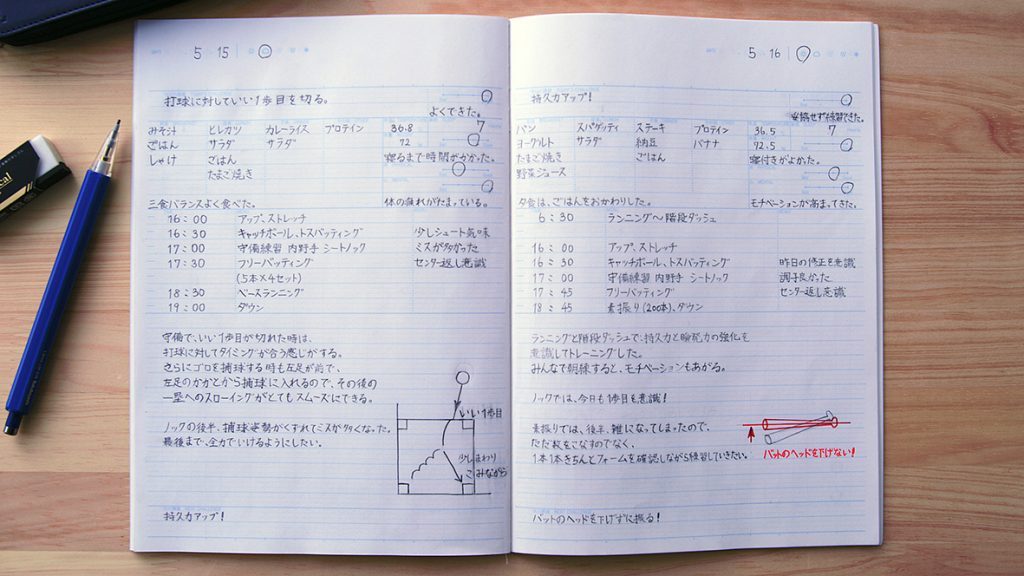 5 15
打球に対していい1歩目を切る。
よくできた。
みそ汁 ヒレカツ カレーライス プロテイン 36.8 7
ごはん サラダ サラダ 72
しゃけ ごはん 寝るまで時間がかかった。
たまご焼き
三食バランスよく食べた。 体の疲れがたまっている。
16:00 アップ、ストレッチ
16:30 キャッチボール、トスバッティング 少しシュート気味
17:00 守備練習 内野手 シートノック ミスが多かった
17:30 フリーバッティング センター返し意識
(5本×4セット)
18:30 ベースランニング
19:00 ダウン
守備で、いい1歩目が切れた時は、
打球に対してタイミングが合う感じがする。
さらにゴロを捕球する時も左足が前で、
左足のかかとから捕球に入れるので、その後の
一塁へのスローイングがとてもスムーズにできる。
ノックの後半、捕球姿勢がくずれてミスが多くなった。
最後まで、全力でいけるようにしたい。
いい1歩目
少しまわり
こみながら
持久力アップ!
5 16
持久力アップ!
妥協せず練習できた。
パン スパゲッティ ステーキ プロテイン 36.5 7
ヨーグルト サラダ 納豆 バナナ 72.5
たまご焼き ごはん 寝付きがよかった。
野菜ジュース
夕食は、ごはんをおかわりした。 モチベーションが高まってきた。
6:30 ランニング〜階段ダッシュ
16:00 アップ、ストレッチ
16:30 キャッチボール、トスバッティング 昨日の修正を意識
17:00 守備練習 内野手 シートノック 調子良かった
17:45 フリーバッティング センター返し意識
18:45 素振り(200本)、ダウン
ランニングと階段ダッシュで、持久力と瞬発力の強化を
意識してトレーニングした。
みんなで朝練すると、モチベーションもあがる。
ノックでは、今日も1歩目を意識!
素振りでは、後半、雑になってしまったので、
ただ数をこなすのでなく、
1本1本きちんとフォームを確認しながら練習していきたい。
バットのヘッドを下げない!
バットのヘッドを下げずに振る!